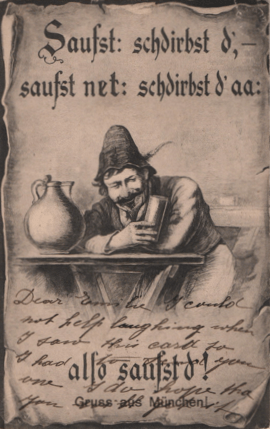 Saufst: schdirbst d',–
saufst net: schdirbst d' aa:
Dear I could
not help laughing when
I saw this card so
I had to you
also saufst d'!
one I do hope tha
Gruss aus München!
you